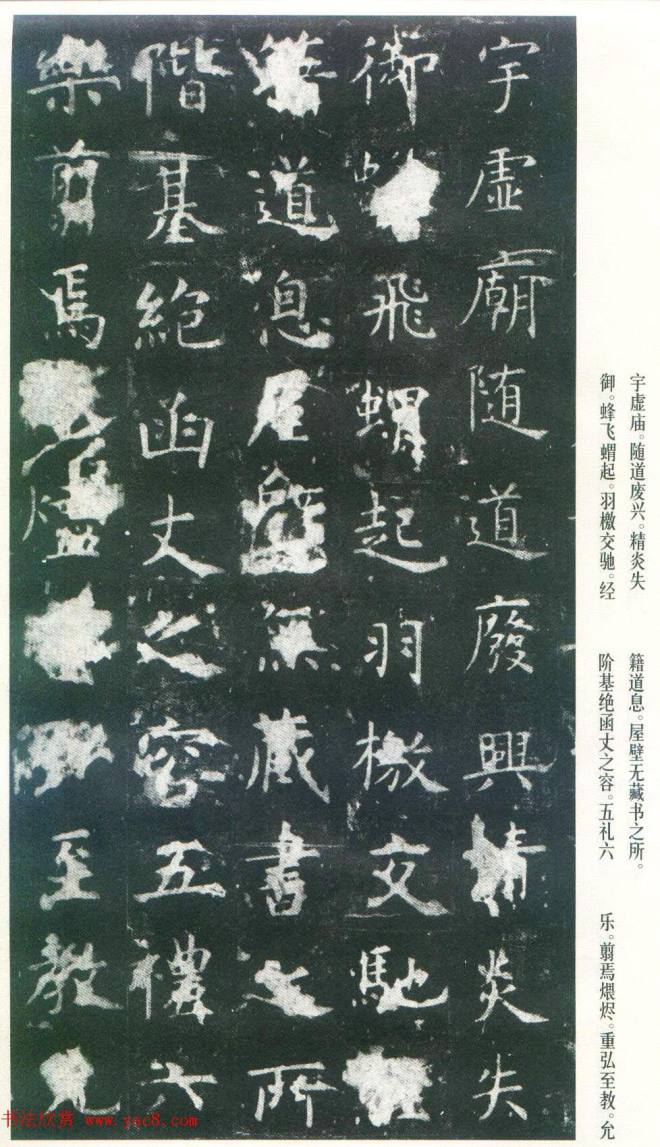 宇虚廟随道廢興精炎失
御蜂飛蝟起羽檄交馳經
籍道息屋壁無藏書之所
階基絕函丈之容五禮六
樂翦焉煨燼至教允
宇虚庙。随道废兴。精炎失
御。蜂飞蝟起。羽檄交驰。经
籍道息。屋壁无藏书之所。
阶基绝函丈之容。五礼六
乐。翦焉煨烬。重弘至教。允
书法欣赏 www.yac8.com